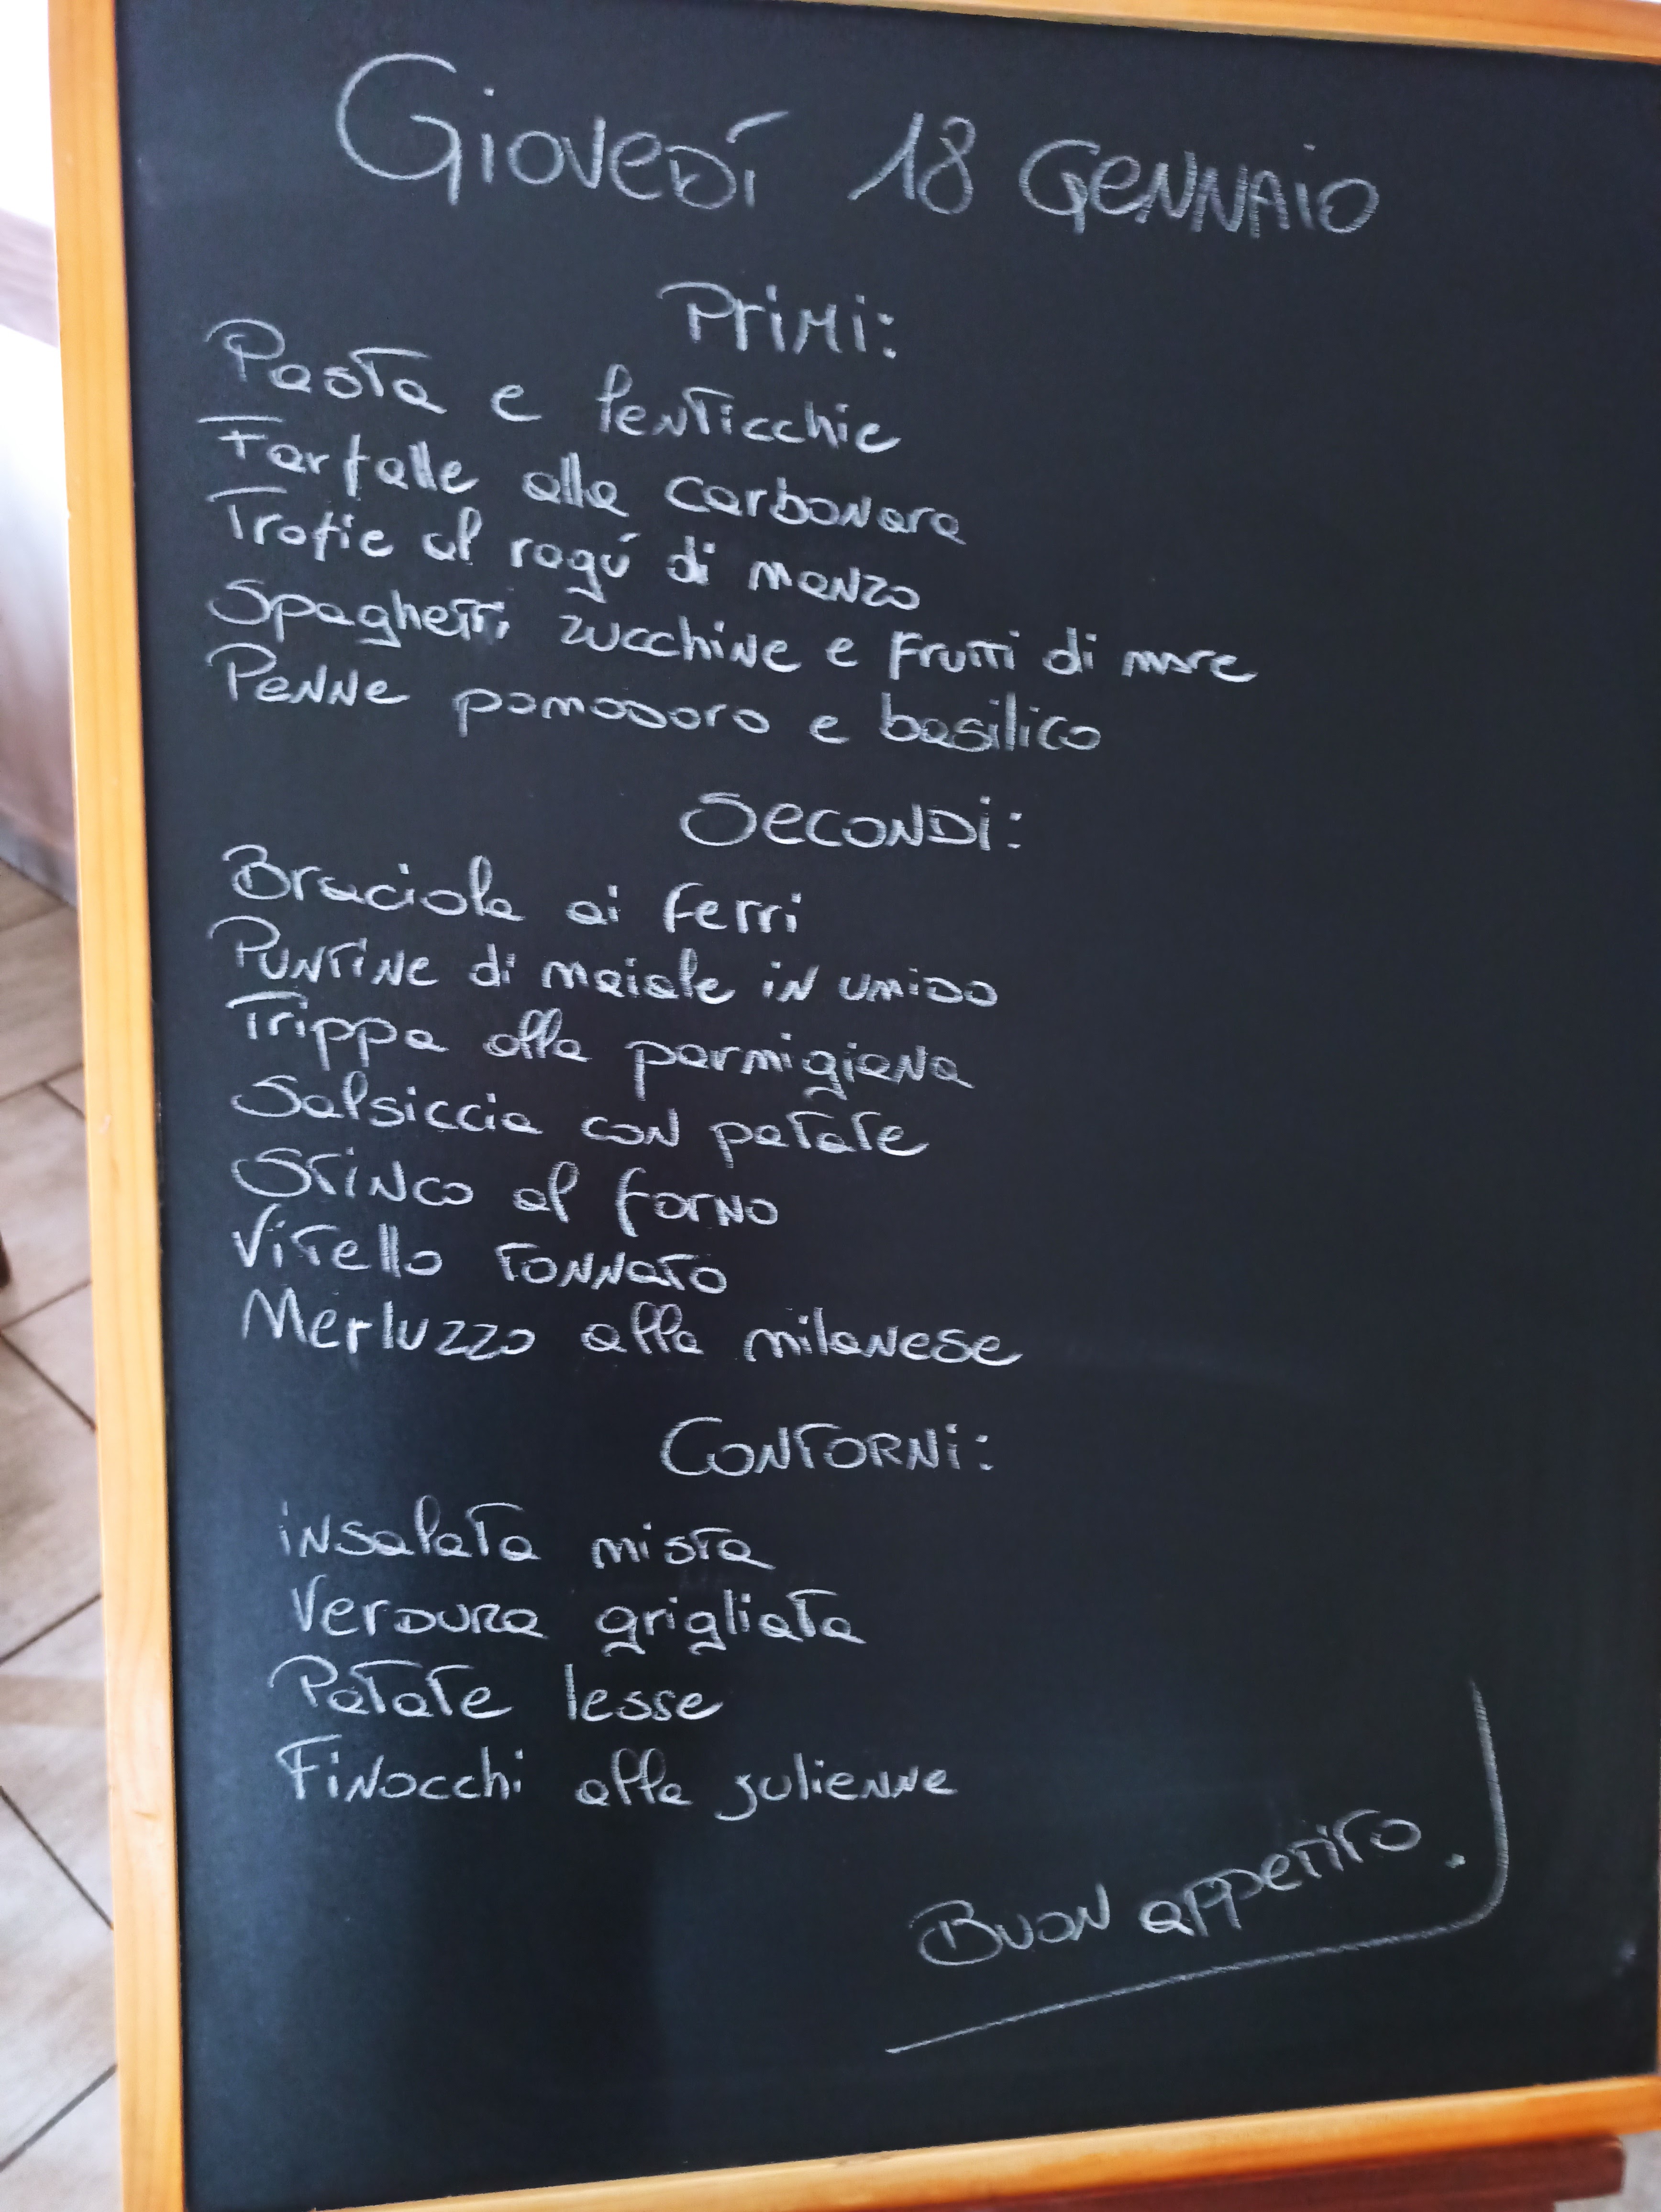 Giovedí 18 Gennaio
Primi:
Pasta e lenticchie
Farfalle alla carbonara
Trofie al ragú di manzo
Spaghetti zucchine e frutti di mare
Penne pomodoro e basilico
Secondi:
Braciola ai ferri
Puntine di maiale in umido
Trippa alla parmigiana
Salsiccia con patate
Stinco al forno
Vitello tonnato
Merluzzo alla milanese
Contorni:
insalata mista
Verdura grigliata
Patate lesse
Finocchi alla julienne
Buon appetito.